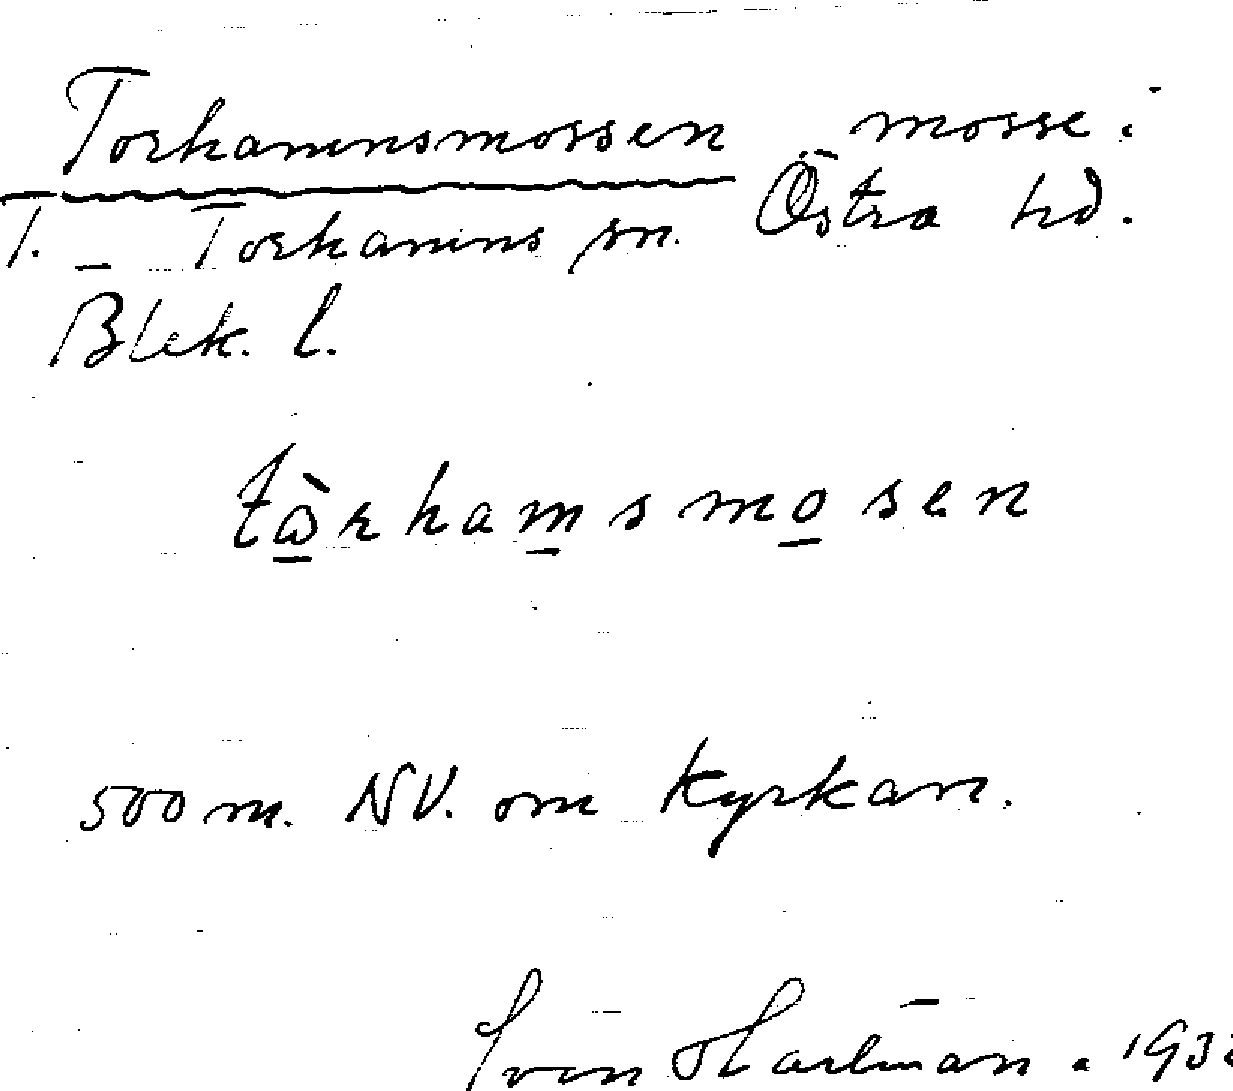 Torhamnsmossen mosse:
T. – Torhamns sn. Östra hd.
Blek. l.
tòrhamsmosen
500 m. NV. om Kyrkan.
Sven Hartman. 193